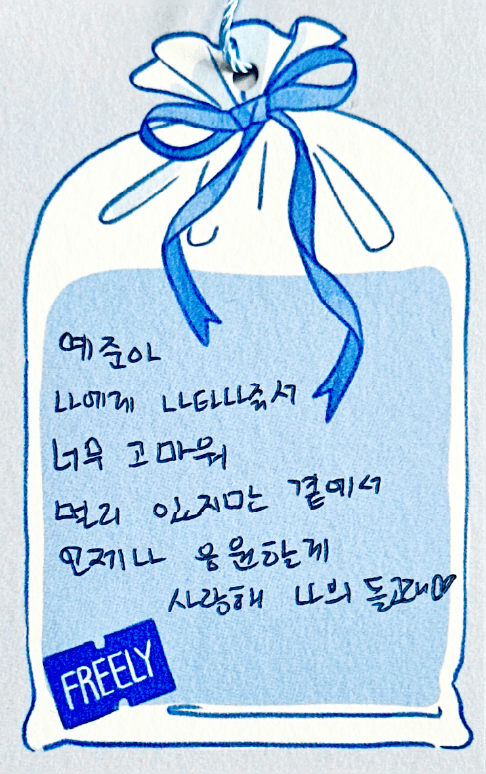 예준아
나에게 나타나줘서
너무 고마워
멀리 있지만 곁에서
언제나 응원할게
사랑해 나의 돌고래♡
FREELY